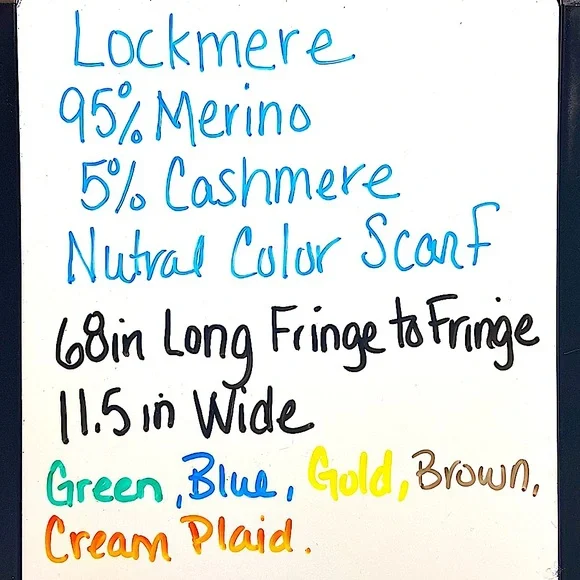 Lockmere
95% Merino
5% Cashmere
Nutral Color Scarf
68in Long Fringe to Fringe
11.5 in Wide
Green, Blue, Gold, Brown,
Cream Plaid.